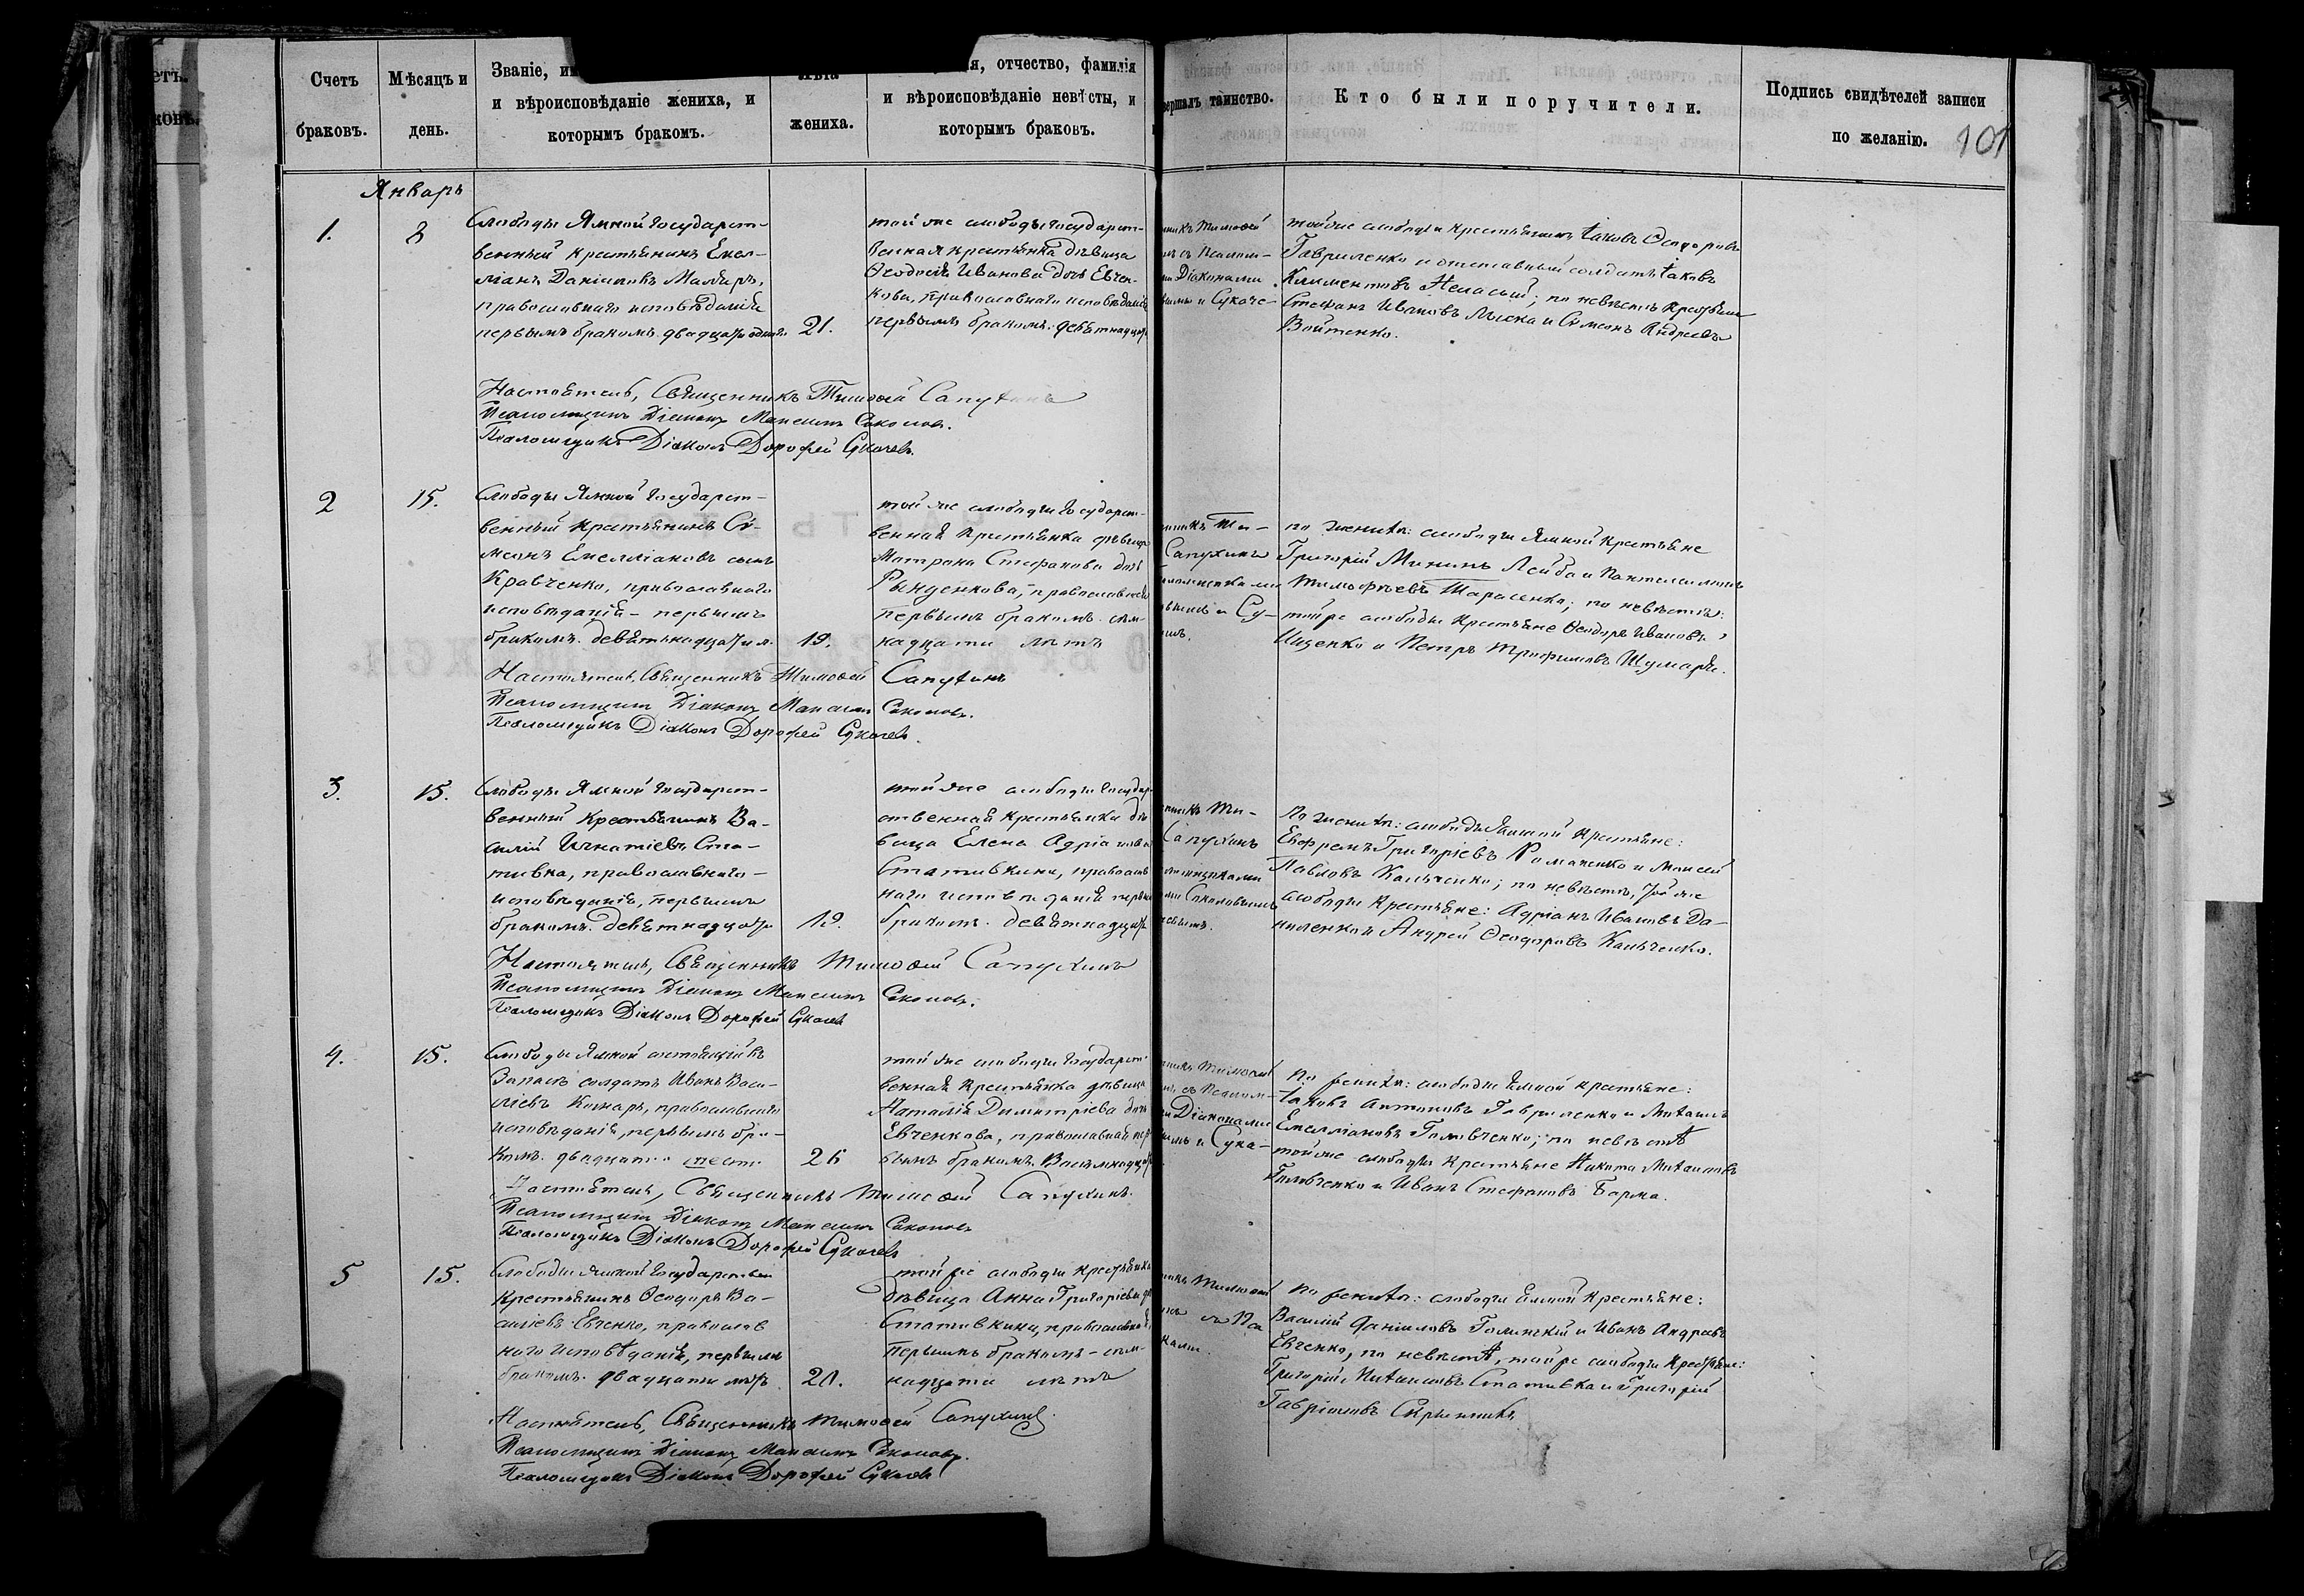 Счетъ
браковъ.
Мѣсяцъ и
день.
Званіе,
и вѣроисповѣданіе жениха, и
которымъ бракомъ.
жениха.
отчество, фамилія
и вѣроисповѣданіе невѣсты, и
которымъ браковъ.
таинство.
Кто были поручители.
Подпись свидѣтелей записи
по желанію.
101
Январь
1.
8
Слободы Ямной Государст-
венный крестьянинъ Емел-
ліанъ Даніиловъ Маляръ,
православнаго исповѣданія
первымъ бракомъ. двадцати одного
21.
той же слободы Государст-
венная крестьянка дѣвица
Ѳеодосія Иванова дочь Евчен-
кова, православнаго исповѣданія
первымъ бракомъ. девятнадцати
Тимофей
Діаконами
и Сукаче-
той же слободы крестьянинъ Іаковъ Ѳеодоровъ
Гавриленко и отставный солдатъ Іаковъ
Климентовъ; по невѣстѣ крестьяне
Стефанъ Ивановъ и Симеонъ Андреевъ
Войтенко.
Настоятель, Священникъ Тимоѳей Сапухинъ
Псаломщикъ Діаконъ Максимъ Соколовъ.
Псаломщикъ Діаконъ Дорофей Сукачевъ.
2
15.
Слободы Ямной Государст-
венный крестьянинъ Си-
меонъ Емелліановъ сынъ
Кравченко, православнаго
исповѣданія - первымъ
бракомъ. девятьнадцати л.
19.
той же слободы Государст-
венная крестьянка дѣвица
Матрона Стефанова дочь
Рынденкова, православнаго
первымъ бракомъ. сем-
надцати лѣтъ
Ти-
Сапухинъ
и Су-
по женихѣ: слободы Ямной крестьяне
Григорій Мининъ Лейба и Пантелеимонъ
Тимофеевъ Тарасенко; по невѣстѣ:
той же слободы крестьяне Ѳеодоръ Ивановъ
Ищенко и Петръ Трофимовъ Шумаръ.
Настоятель, Священникъ Тимоѳей Сапухинъ
Псаломщикъ Діаконъ Максимъ Соколовъ.
Псаломщикъ Діаконъ Дорофей Сукачевъ.
3.
15.
Слободы Ямной Государст-
венный крестьянинъ Ва-
силій Игнатіевъ Ста-
тивка, православнаго
исповѣданія, первымъ
бракомъ. девятнадцать
19.
той же слободы Государ-
ственная крестьянка дѣ-
вица Елена Адріанова
Стативкина, православ-
наго исповѣданія первымъ
бракомъ. девятнадцать
Ти-
Сапухинъ
Соколовымъ
По женихѣ: слободы Ямной крестьяне:
Евфремъ Григоріевъ Романенко и Моисей
Павловъ Кальченко; по невѣстѣ, той же
слободы крестьяне: Адріанъ Ивановъ Да-
ниленко и Андрей Ѳеодоровъ Кальченко.
Настоятель, Священникъ Тимоѳей Сапухинъ
Псаломщикъ Діаконъ Максимъ Соколовъ.
Псаломщикъ Діаконъ Дорофей Сукачевъ
4.
15.
Слободы Ямной состоящій въ
запасѣ солдатъ Иванъ Васи-
ліевъ Комаръ, православнаго
исповѣданія, первымъ бра-
комъ. двадцати шести
26
той же слободы Государст-
венная крестьянка дѣвица
Наталія Димитріева дочь
Евченкова, православная пер-
вымъ бракомъ. Восемнадцать
Тимоѳей
съ Псалом-
Діаконами
и Сука-
По женихѣ: слободы Ямной крестьяне:
Іаковъ Антоновъ Гавриленко и Михаилъ
Емелліановъ Головченко; по невѣстѣ
той же слободы крестьяне Никита Михаиловъ
Головченко и Иванъ Стефановъ Барма.
Настоятель, Священникъ Тимоѳей Сапухинъ.
Псаломщикъ Діаконъ Максимъ Соколовъ
Псаломщикъ Діаконъ Дорофей Сукачевъ
5
15.
Слободы Ямной Государственный
крестьянинъ Ѳеодоръ Ва-
силіевъ Евченко, православ
наго исповѣданія, первымъ
бракомъ. двадцати лѣтъ
20.
той же слободы крестьянка
дѣвица Анна Григоріева
Стативкина, православная,
первымъ бракомъ - сем-
надцати лѣтъ
Тимоѳей
По женихѣ: слободы Ямной крестьяне:
Василій Даніиловъ Голинскій и Иванъ Андреевъ
Евченко, по невѣстѣ, той же слободы крестьяне:
Григорій Михаиловъ Стативка и Григорій
Гавріиловъ Скрынникъ
Настоятель, Священникъ Тимоѳей Сапухинъ.
Псаломщикъ Діаконъ Максимъ Соколовъ.
Псаломщикъ Діаконъ Дорофей Сукачевъ